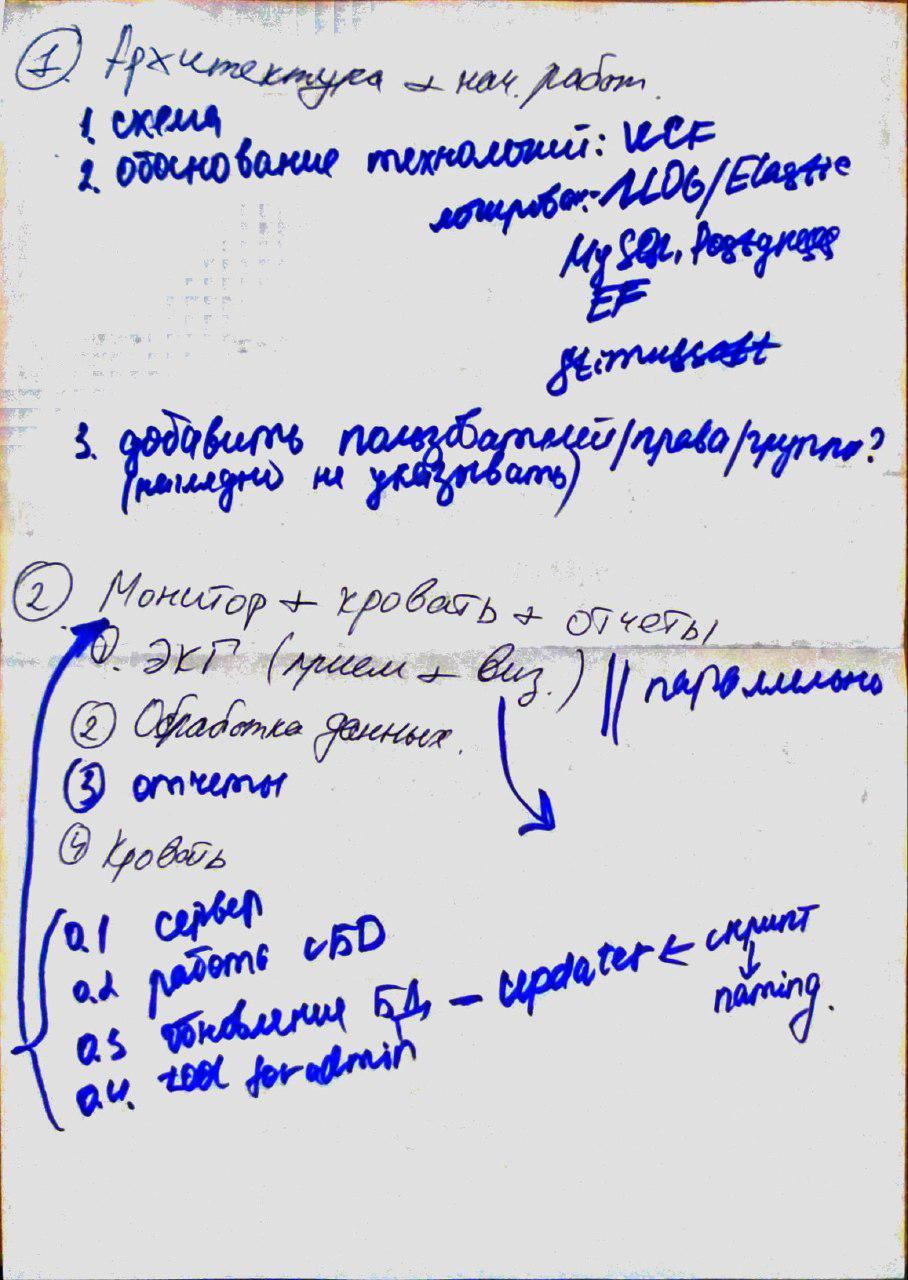 1 Архитектура + нач. работ.
1. схема
2. обоснование технологий: WCF
логирован.- NLOG/Elastic
MySQL, Postgress
EF
Stimulsoft
3. добавить пользователей/права/группы?
(наглядно не указывать)
2 Монитор + кровать + отчеты
1. ЭКГ (прием + виз.) || параллельно
2 Обработка данных.
3 отчеты
4 Кровать
0.1 сервер
0.2 работа с БД
0.3 обновление БД, – updater ← скрипт
↓
naming.
0.4. tool for admin